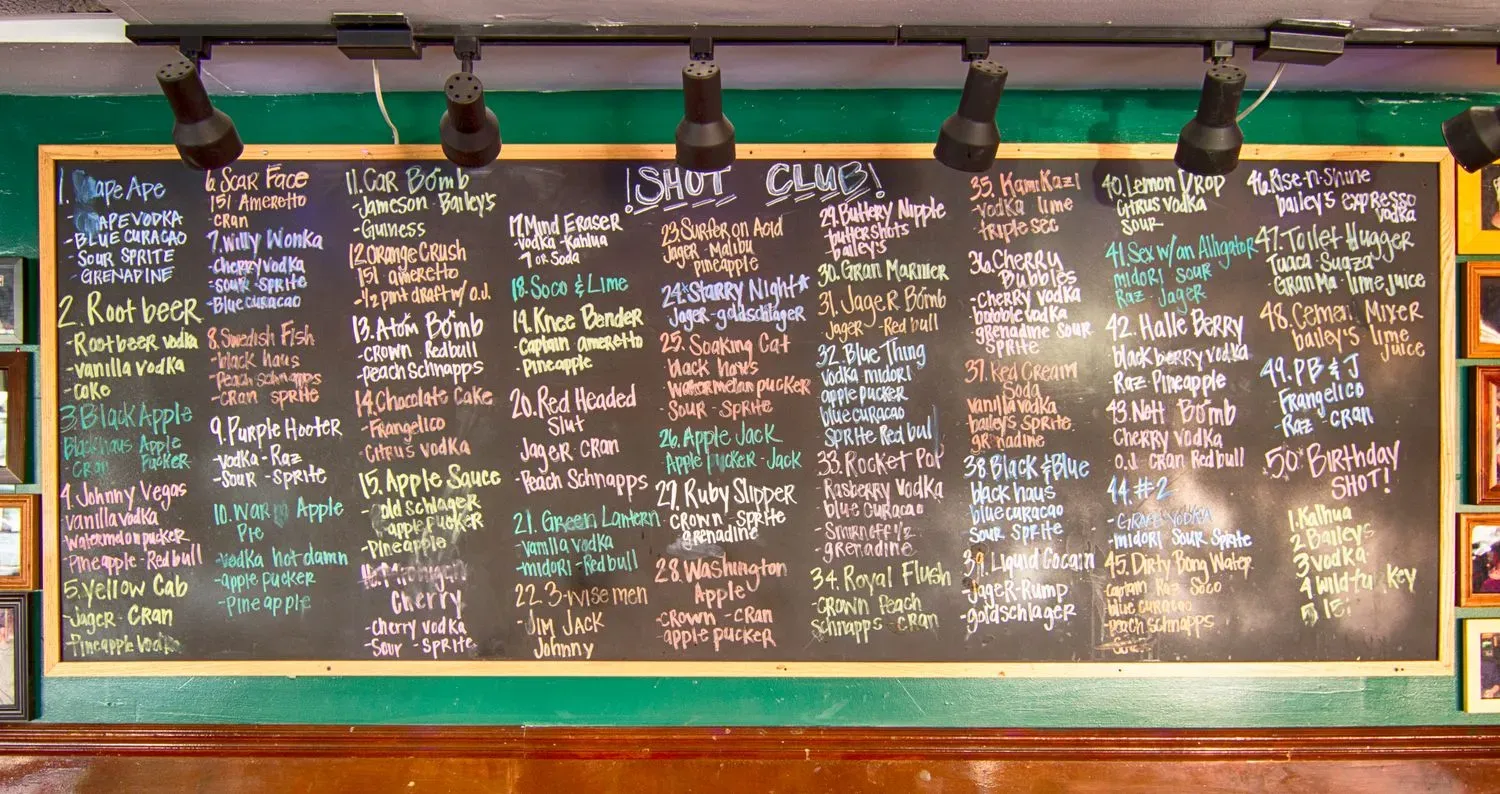 !SHOT CLUB!
1. ape Ape
-GRAPE VODKA
-BLUE CURACAO
-SOUR SPRITE
-GRENADINE
2. Root beer
-Root beer vodka
-vanilla vodka
-coke
3. Black Apple
Black haus Apple
Cran Pucker
4. Johnny Vegas
vanilla vodka
watermelon pucker
Pineapple - Red bull
5. Yellow Cab
-Jager - Cran
-Pineapple Vodka
6. Scar Face
151 Ameretto
-cran
7. Willy Wonka
-Cherry vodka
-sour sprite
-Blue curacao
8. Swedish Fish
-black haus
-Peach schnapps
-cran sprite
9. Purple Hooter
-vodka - Raz
-Sour - Sprite
10. Warm Apple
Pie
-vodka hot damn
-apple pucker
-Pineapple
11. Car Bomb
-Jameson - Bailey's
-Guiness
12. Orange Crush
151 ameretto
-1/2 pint draft w/ O.J.
13. Atom Bomb
-crown Redbull
-peach schnapps
14. Chocolate Cake
-Frangelico
-Citrus vodka
15. Apple Sauce
-old schlager
-apple pucker
-Pineapple
16. Michigan
Cherry
-cherry vodka
-Sour - sprite
17. Mind Eraser
vodka - Kahlua
7 or Soda
18. Soco & Lime
19. Knee Bender
-Captain ameretto
-Pineapple
20. Red Headed
Slut
Jager cran
-Peach Schnapps
21. Green Lantern
-vanilla vodka
-midori - Red bull
22. 3-wise men
-JIM JACK
Johnny
23. Surfer on Acid
Jager - Malibu
pineapple
24. *Starry Night*
Jager - goldschlager
25. Soaking Cat
black haus
Watermelon pucker
Sour - Sprite
26. Apple Jack
Apple pucker - Jack
27. Ruby Slipper
crown - sprite
grenadine
28. Washington
Apple
-Crown - Cran
-apple pucker
29. Buttery Nipple
buttershots
bailey's
30. Gran Marnier
31. Jager Bomb
Jager - Red bull
32. Blue Thing
vodka midori
apple pucker
blue curacao
Sprite Red bull
33. Rocket Pop
Rasberry Vodka
blue curacao
-Smirnoff 1/2
-grenadine
34. Royal Flush
-crown Peach
schnapps - cran
35. KamiKazi
-vodka lime
-triple sec
36. Cherry
Bubbles
-Cherry vodka
bobble vodka
grenadine sour
sprite
37. Red Cream
Soda
vanilla vodka
bailey's Sprite
grenadine
38. Black & Blue
black haus
blue curacao
sour sprite
39. Liquid Cocain
-Jager-Rump
-goldschlager
40. Lemon Drop
Citrus vodka
sour
41. Sex w/ an Alligator
midori sour
Raz Jager
42. Halle Berry
blackberry vodka
Raz-Pineapple
43. Nott Bomb
Cherry vodka
O.J. cran Redbull
44. #2
-Grape vodka
-midori Sour Sprite
45. Dirty Bong Water
captain Raz Soco
blue curacao
peach schnapps
sour
46. Rise-n-Shine
bailey's expresso
vodka
47. Toilet Hugger
Tuaca - Suaza
Gran Ma - lime juice
48. Cement Mixer
bailey's lime
juice
49. PB & J
Frangelico
-Raz - cran
50. *Birthday
SHOT!
1. Kalhua
2 Baileys
3 vodka
4 wild tu key
5 151